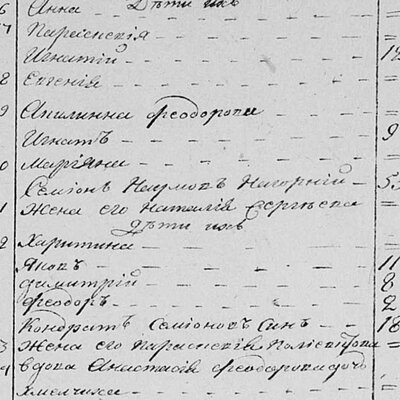 6 Анна Дѣти ихъ
7 Параскевія =
Игнатій 12
8 Евгенія =
9 Акилинна Феодорова =
Игнатъ 9
0 Маріяна =
Семіонъ Наумовъ Нагорній 53
1 Жена его Наталія Сергѣева =
Дѣти ихъ
2 Харитина =
Яковъ 11
Димитрій 8
Феодоръ 2
Кондратъ Семіоновъ Синъ 18
3 Жена его Параскевія =
4 вдова Анастасія Феодорова дочь
Хмелчиха =